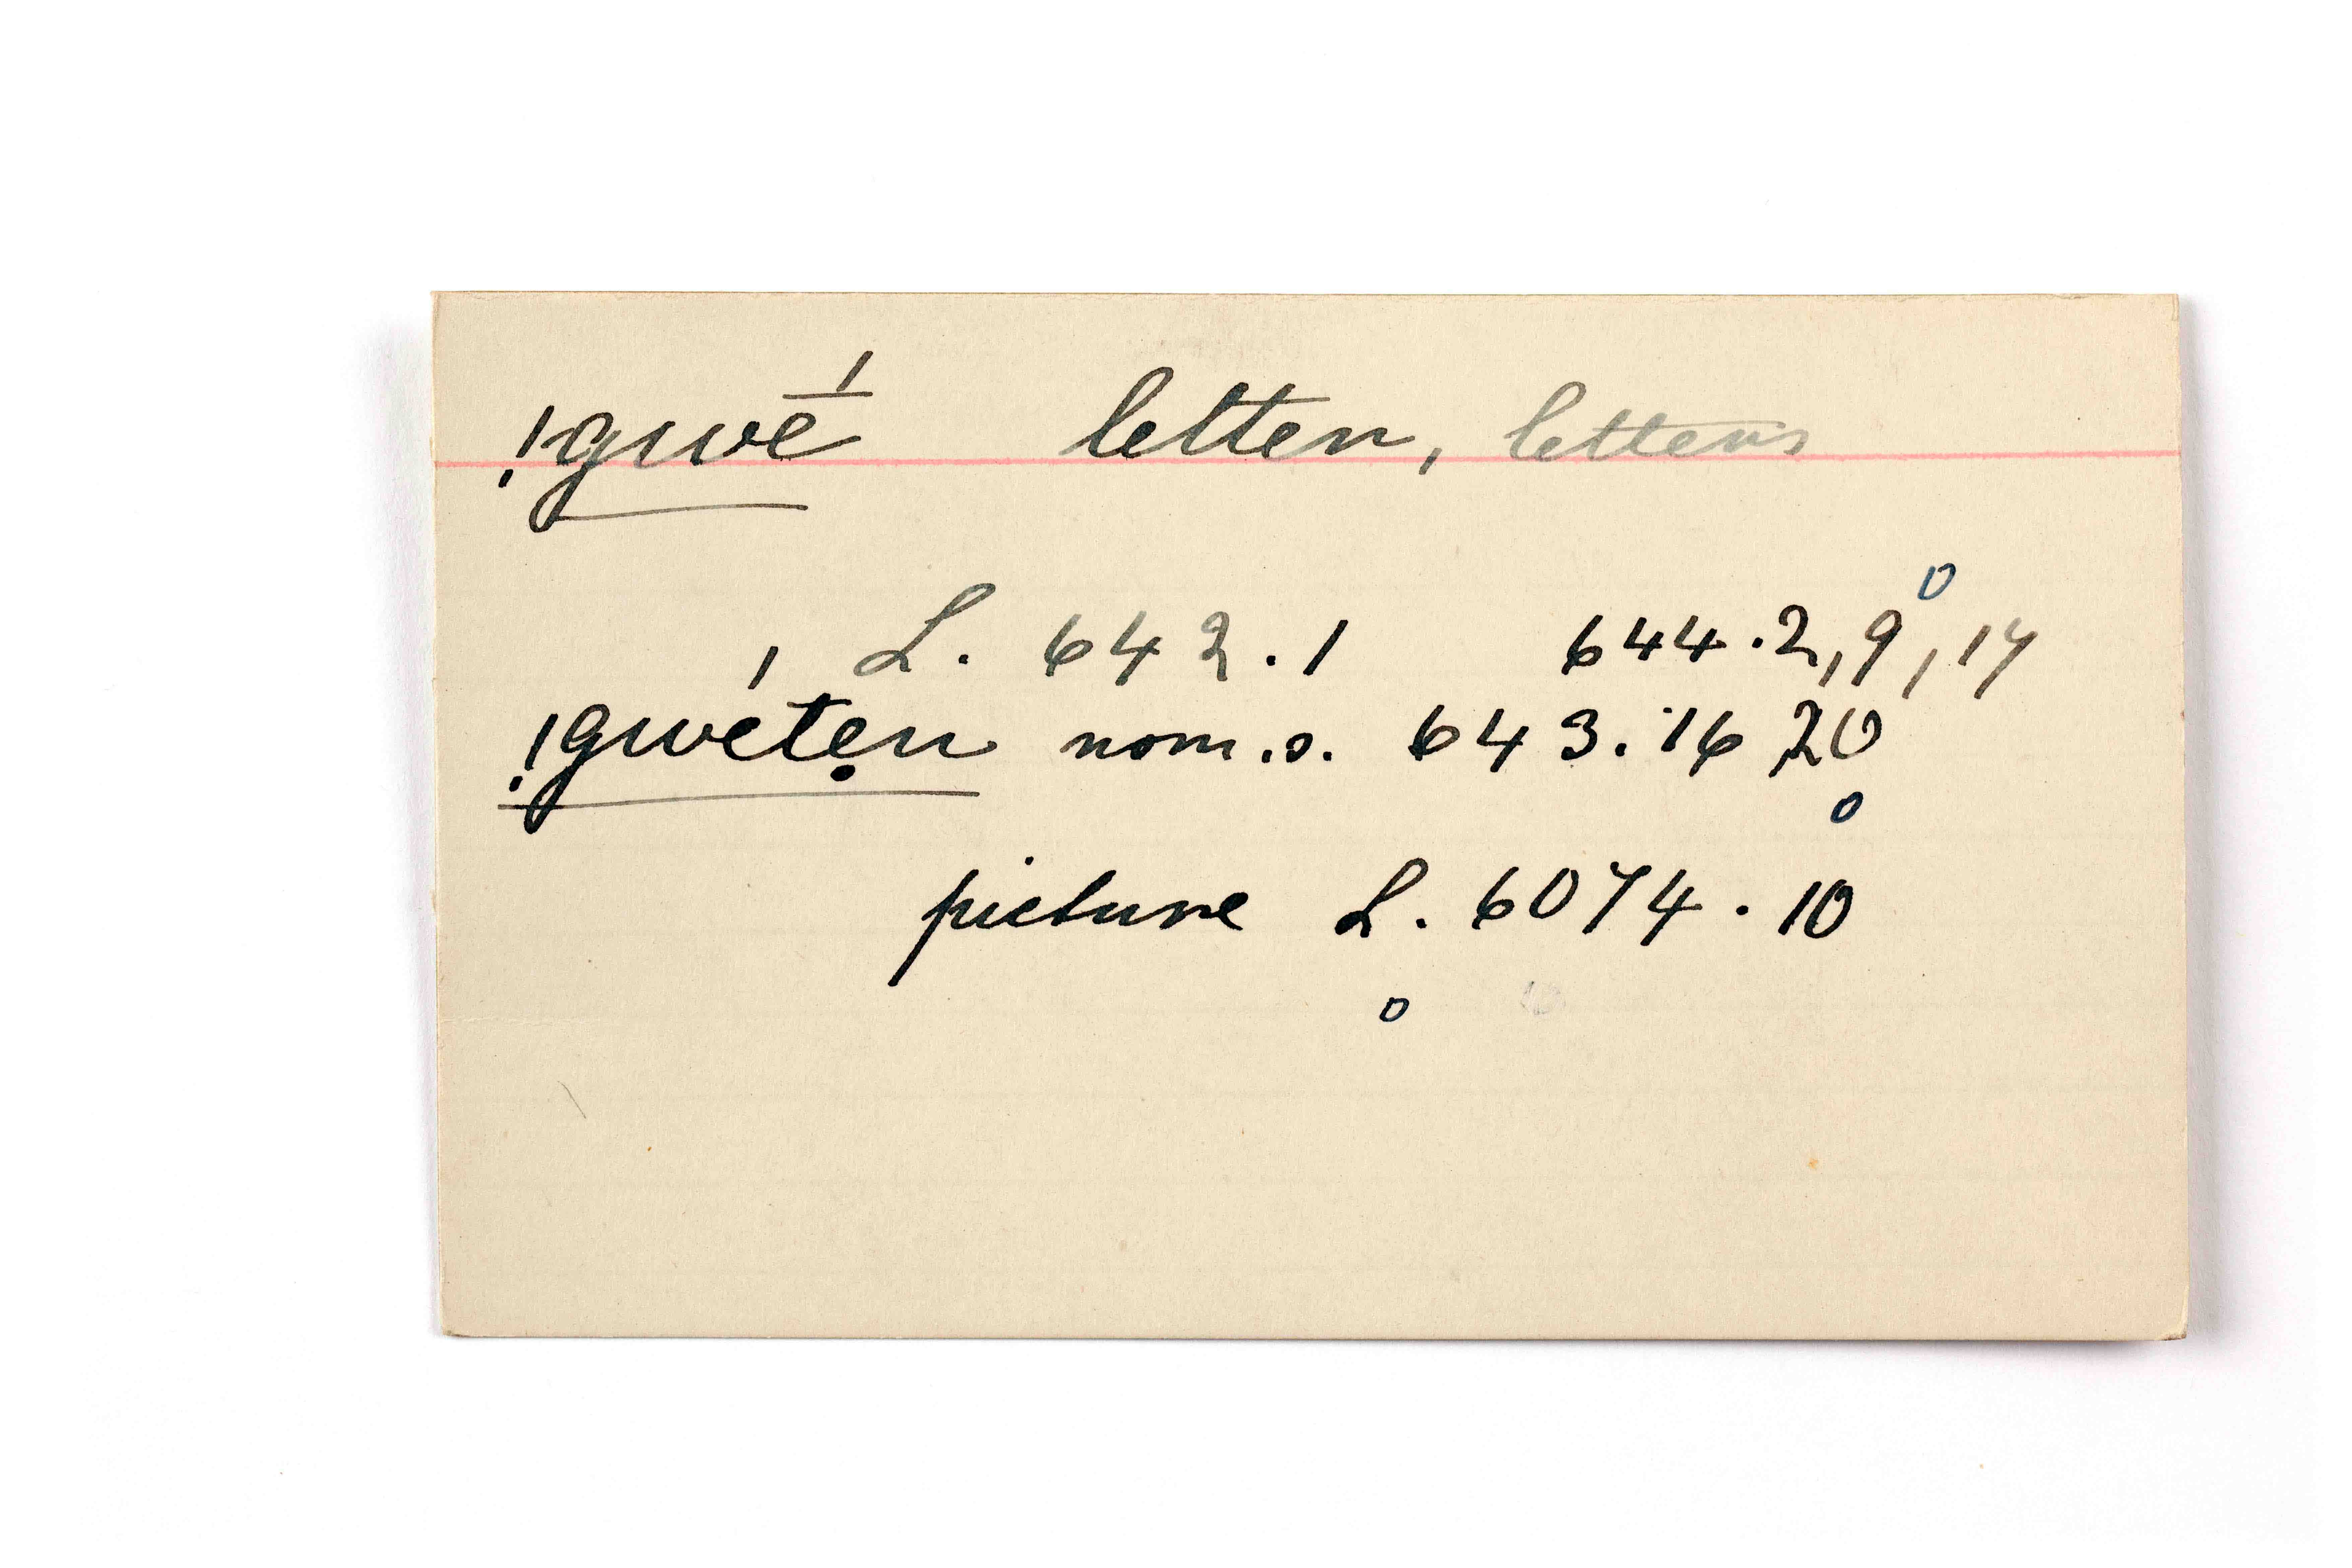 !gwḗ letter, letters
L. 642.1 644.2,9,17
!gwétẹn nom.s. 643.16 20
picture L. 6074.10